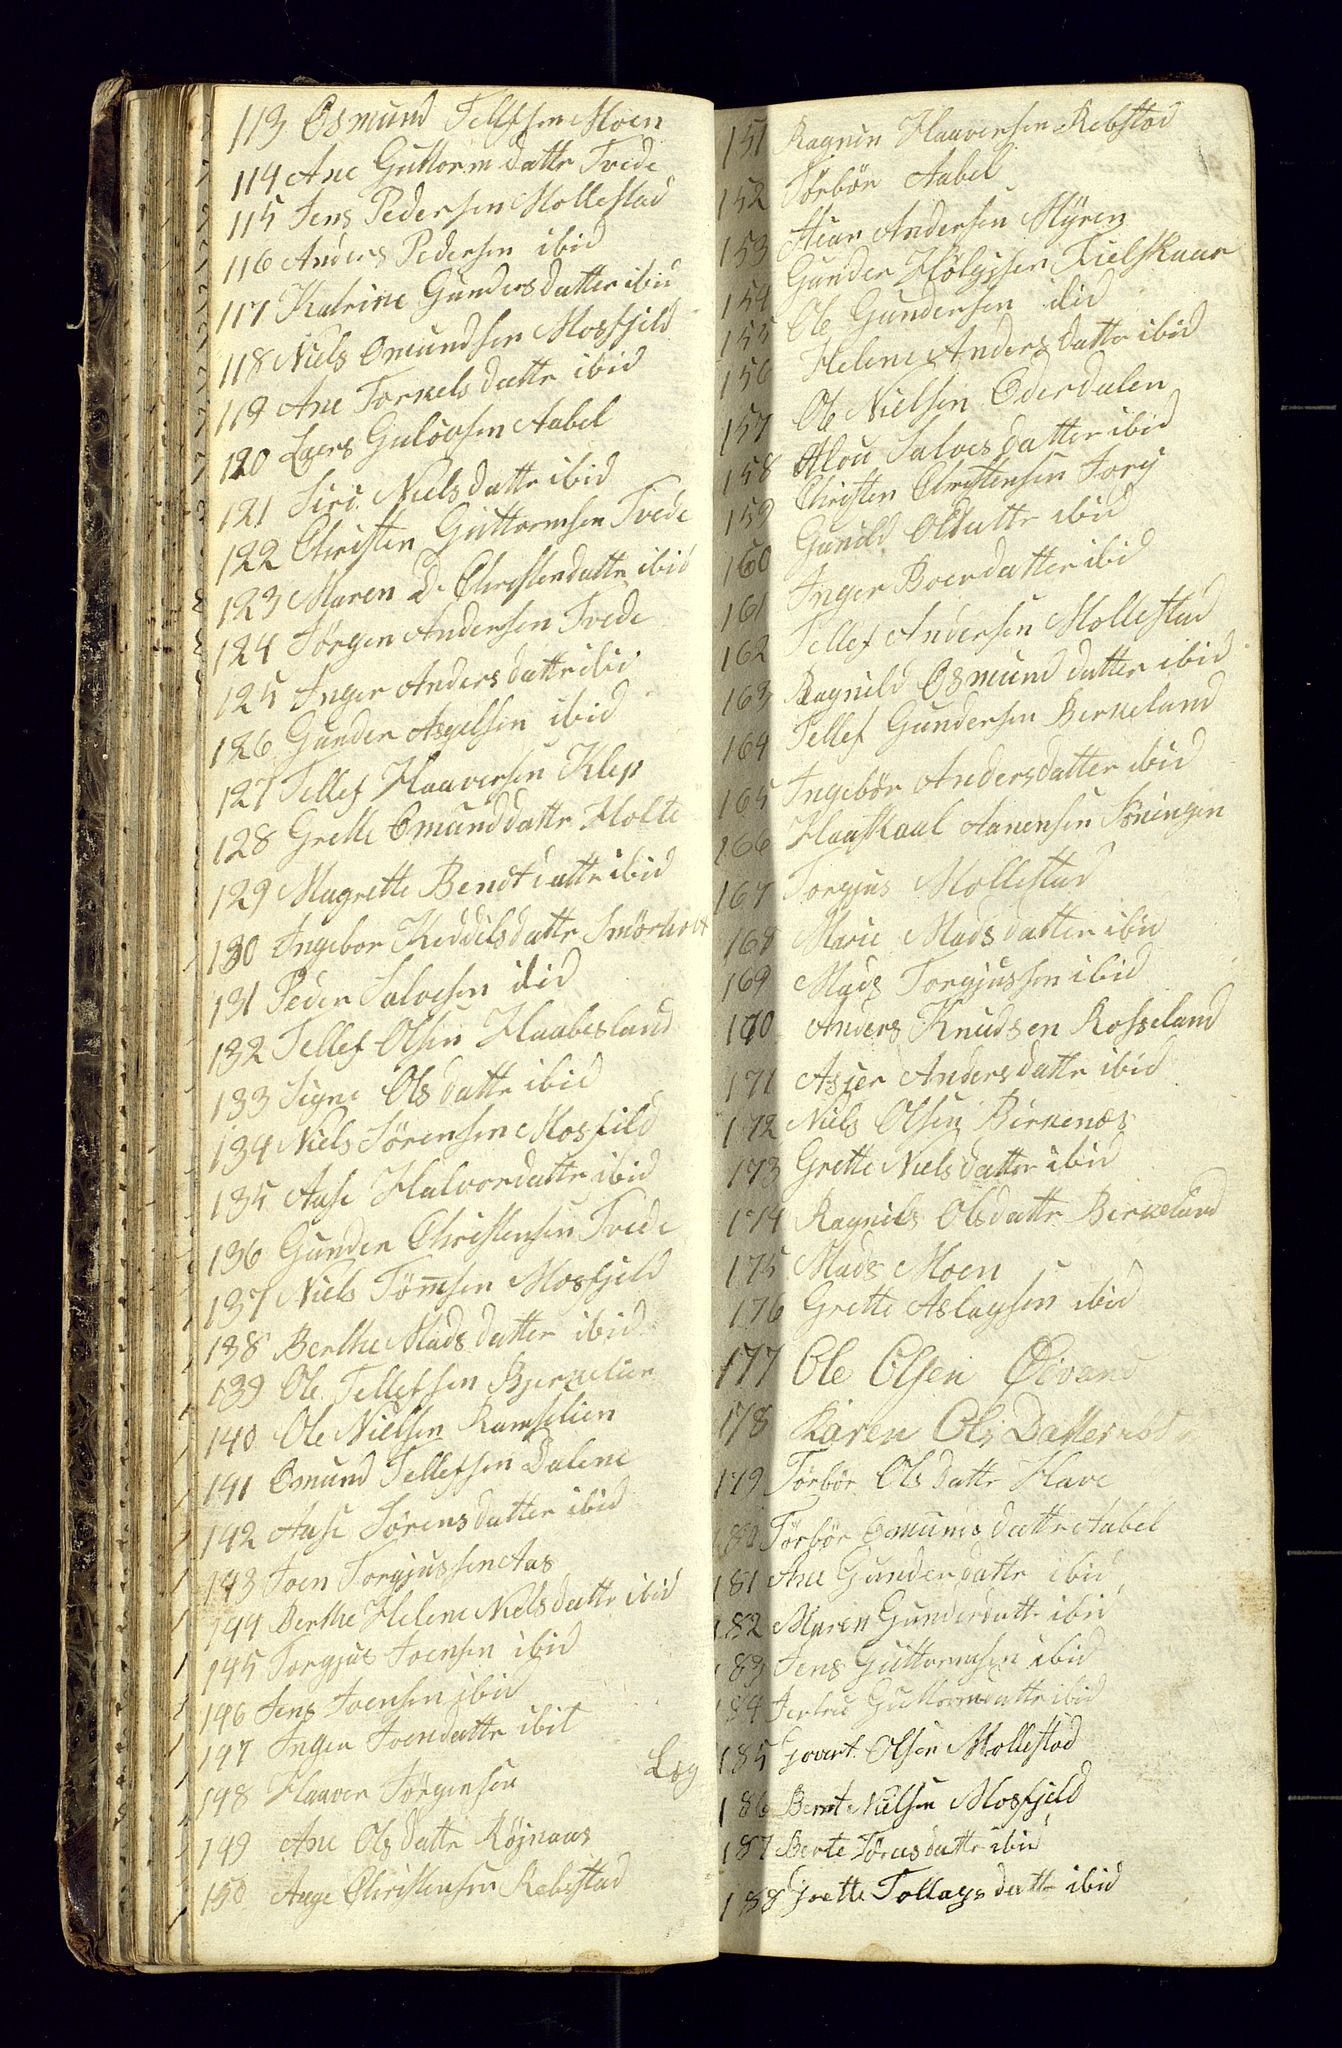 113 Osmund Tellefsen Moen
114 Ane Guttorm datter Tvede
115 Jens Pedersen Mollestad
116 Anders Pedersen ibid
117 Katrine Gundersdatter ibid
118 Niels Omundsen Mosfjeld
119 Ane Torkelsdatter ibid
120 Laers Gulovsen Aabel
121 Siri Nielsdatter ibid
122 Christen Guttormsen Tvede
123 Maren D. Christendatter ibid
124 Jörgen Andersen Tvede
125 Inger Andersdatter ibid
126 Gunder Asgelsen ibid
127 Tellef Haaversen Klep
128 Grette Omunddatter Holte
129 Magrette Bendtdatter ibid
130 Ingebor Keddelsdatter Smörholt
131 Peder Salvesen ibid
132 Tellef Olsen Haabesland
133 Signe Olsdatter ibid
134 Niels Sörensen Mosfild
135 Aase Halvordatter ibid
136 Gunder Christensen Tvede
137 Niels Tömsen Mosfjeld
138 Berthe Madsdatter ibid
139 Ole Tellefsen Bjerkelien
140 Ole Nielsen Ramselien
141 Omund Tellefsen Dalene
142 Aase Sörensdatter ibid
143 Joen Torgjussen Aas
144 Berthe Helene Nielsdatter ibid
145 Torgjus Joensen ibid
146 Jens Joensen ibid
147 Inger Joendatter ibit
148 Haaver Jörgensen Log
149 Ane Olsdatter Röjnaas
150 Aage Christensen Rebestad
151 Ragnin Haaversen Rebstad
152 Törbör Aabel
153 Andersen Myren
154 Gunder Hölgjsen Fielskaar
155 Ole Gundersen ibid
156 Helene Anders datter ibid
157 Ole Nielsen Oderdalen
158 Alou Salves datter ibid
159 Christen Christensen Torg
160 Gunild Olsdatter ibid
161 Inger Boerdatter ibid
162 Tellef Andersen Mollestad
163 Ragnild Osmund datter ibid
164 Tellef Gundersen Berkeland
165 Ingebör Andersdatter ibid
166 Haaskaal Aanensen
167 Torgjus Mollestad
168 Marie Mads datter ibid
169 Mads Torgjussen ibid
170 Anders Knudsen Rosseland
171 Asjer Anders datter ibid
172 Niels Olsen Birkenæs
173 Grette Niels datter ibid
174 Ragnils Olsdatter Berkeland
175 Mads Moen
176 Grette Aslagsen ibid
177 Ole Olsen Øivand
178 Karen Ols Datter ibid
179 Törbör Ols datter Have
180 Törbör Omunds datter Aabel
181 Ane Gunderdatter ibid
182 Maren Gunderdatter ibid
183 Jens Guttormsen ibid
184 Guttormsdatter ibid
185 Govert Olsen Mollestad
186 Bernt Nielsen Mosfjeld
187 Berte datter ibid
188 Grette Tollags datter ibid